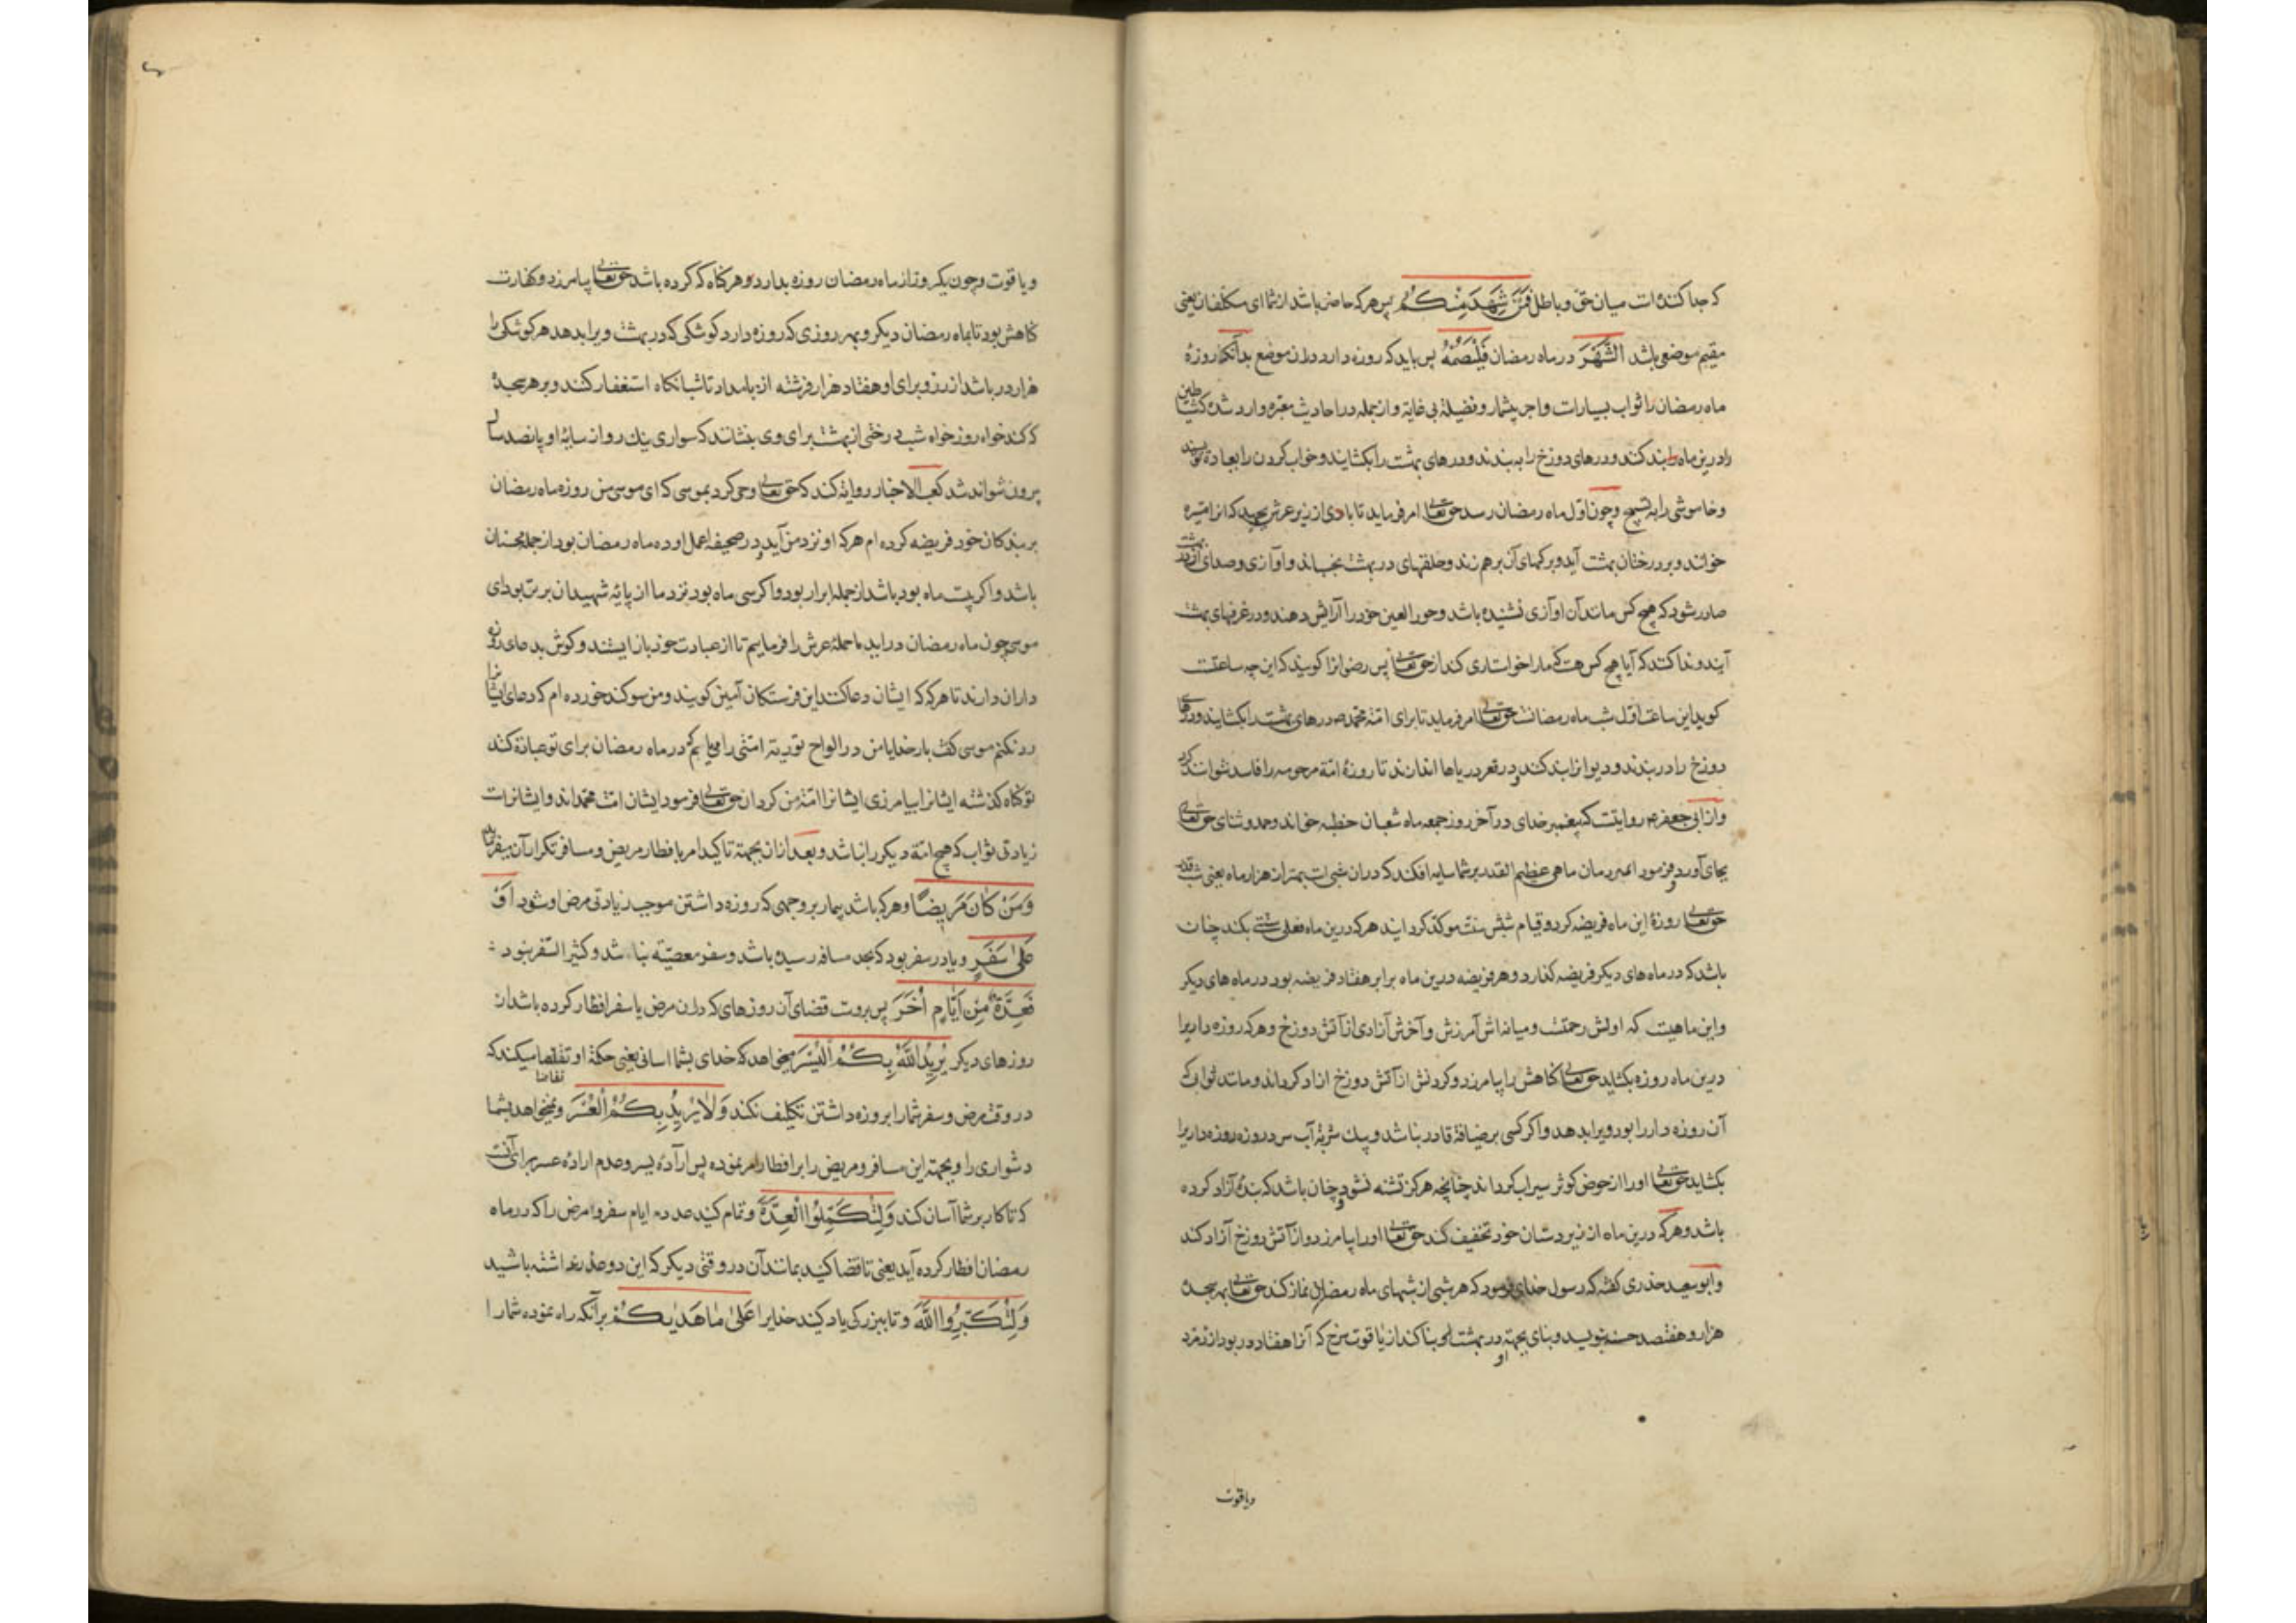 که جدا کننده است میان حق و باطل فَمَنْ شَهِدَ مِنْكُمُ پس هر که حاضر باشد از شما ای مکلفان یعنی
مقیم موضعی باشد الشَّهْرَ در ماه رمضان فَلْيَصُمْهُ پس باید که روزه دارد در آن موضع بدانکه روزهٔ
ماه رمضان را ثواب بسیارست و اجر بیشمار و فضیلة بی غایة و از جمله در احادیث معتبره وارد شده که شیاطین
را در این ماه بند کنند و درهای دوزخ را به بندند و درهای بهشت را بکشایند و خواب کردن را بعبادة نویسند
و خاموشی را به تسبیح و چون اول ماه رمضان رسد حق تعالی امر فرماید تا بادی از زیر عرش بجهد که انرا مثیره
خوانند و بر درختان بهشت آید و برکهای آن برهم زند و حلقهای در بهشت بجنباند و آوازی و صدای از در بهشت
صادر شود که هیچ کس مانند آن اوازی نشنیده باشد و حور العین خود را آرایش دهند و در غرفهای بهشت
آیند و ندا کنند که آیا هیچ کس هست که ما را خواستاری کند از حق تعالی پس رضوانرا کویند که این چه ساعتست
کوید این ساعت اول شب ماه رمضانست حق تعالی امر فرماید تا برای امة محمد ص درهای بهشت را بکشایند و درهای
دوزخ را در بندند و دیوانرا بند کنند و در قعر دریاها اندازند تا روزهٔ امة مرحومه را فاسد نتوانند کرد
و از ابی جعفر ص روایتست که پیغمبر خدای در آخر روز جمعه ماه شعبان خطبه خواند و حمد و ثنای حق تعالی
بجای آورد و فرمود ای مردمان ماهی عظیم القدر بر شما سایه افکند که در ان شبی است بهتر از هزار ماه یعنی شب قدر
حق تعالی روزهٔ این ماه فریضه کرد و قیام شبش سنت موکد کردانید هر که درین ماه فعلی سنتی بکند چنان
باشد که در ماه های دیکر فریضه کذارد و هر فریضه درین ماه برابر هفتاد فریضه بود در ماه های دیکر
و این ماهیست که اولش رحمتست و میانه اش آمرزش و آخرش آزادی از آتش دوزخ و هر که روزه داریرا
درین ماه روزه بکشاید حق تعالی کناهش را بیامرزد و کردنش از آتش دوزخ ازاد کرداند و مانند ثواب که
آن روزه دار را بود ویرا بدهد و اکر کسی بر ضیافة قادر نباشد و بیک شربة آب سرد روزه روزه داریرا
بکشاید حق تعالی او را از حوض کوثر سیراب کرداند چنانچه هرکز تشنه نشود و چنان باشد که بندهٔ آزاد کرده
باشد و هر که درین ماه از زیر دستان خود تخفیف کند حق تعالی او را بیامرزد و از آتش دوزخ آزاد کند
و ابو سعید خدری کفته که رسول خدای فرمود که هر شبی از شبهای ماه رمضان نماز کند حق تعالی بهر سجدهٔ
هزار و هفتصد حسنه بنویسد و بنای بجهة او در بهشت بنا کند از یاقوت سرخ که آنرا هفتاد در بود از زمرد
و یاقوت
و یاقوت و چون یکروز از ماه رمضان روزه بدارد و هر کناه که کرده باشد حق تعالی بیامرزد و کفارت
کناهش بود تا بماه رمضان دیکر و بهر روزی که روزه دارد کوشکی که در بهشت ویرا بدهد هر کوشکی را
هزار در باشد از زر و برای او هفتاد هزار فرشته از بامداد تا شبانکاه استغفار کنند و بر هر سجدهٔ
که کند خواه روز خواه شب درختی از بهشت برای وی بنشانند که سواری نیک رو از سایهٔ او پانصد سال
بیرون نتواند شد کعب الاحبار روایة کند که حق تعالی وحی کرد بموسی که ای موسی من روزه ماه رمضان
بر بندکان خود فریضه کرده ام هر که او نزد من آید و در صحیفه اعمال او ده ماه رمضان بود از جمله محسنان
باشد و اکر بیست ماه بود باشد از جمله ابرار بود و اکر سی ماه بود نزد ما از پائیه شهیدان برتر بود ای
موسی چون ماه رمضان در آید ما حملهٔ عرش را فرماییم تا از عبادت خود باز ایستند و کوش بدعای روزه
داران دارند تا هر که که ایشان دعا کنند این فرستکان آمین کویند و من سوکند خورده ام که دعای ایشانرا
رد نکنم موسی کفت بار خدایا من در الواح توریة امتی را می یابم که در ماه رمضان برای تو عبادة کنند
تو کناه کذشته ایشانرا بیامرزی ایشانرا امة من کردان حق تعالی فرمود ایشان امت محمداند و ایشانراست
زیادتی ثواب که هیچ امة دیکر را نباشد و بعد از ان بجهة تاکید امر بافطار مریض و مسافر تکرار آن میفرماید
وَمَنْ كَانَ مَرِيضًا و هر که باشد بیمار بر وجهی که روزه داشتن موجب زیادتی مرض او شود أَوْ
عَلَىٰ سَفَرٍ و یا در سفر بود که بحد مسافه رسیده باشد و سفر معصیّة نباشد و کثیر السّفر نبود
فَعِدَّةٌ مِنْ أَيَّامٍ أُخَرَ پس بروست قضای آن روزهای که در ان مرض یا سفر افطار کرده باشد از
روزهای دیکر يُرِيدُ اللَّهُ بِكُمُ الْيُسْرَ میخواهد که خدای بشما اسانی یعنی حکمة او تقاضا میکند که
در وقت مرض و سفر شما را بروزه داشتن تکلیف نکند وَلَا يُرِيدُ بِكُمُ الْعُسْرَ و نمیخواهد بشما
دشواری را و بجهة این مسافر و مریض را بر افطار امر نموده پس ارادهٔ یسر و عدم ارادهٔ عسر برای آنست
که تا کار بر شما آسان کند وَلِتُكَمِّلُوا الْعِدَّةَ و تمام کنید عدده ایام سفر و مرض را که در ماه
رمضان افطار کرده آید یعنی تا قضا کنید بمانند آن در وقتی دیکر که این دو عذر نداشته باشید
وَلِتُكَبِّرُوا اللَّهَ و تا ببزرکی یاد کنید خدایرا عَلَىٰ مَا هَدَاكُمْ بر آنکه راه نموده شما را